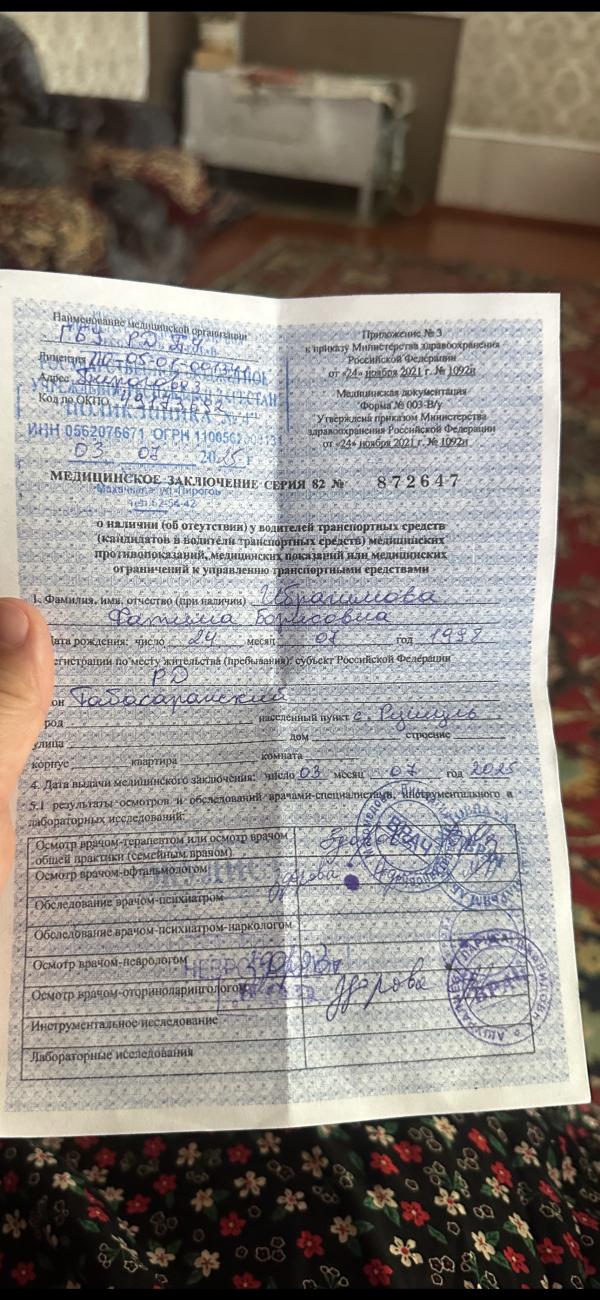 Наименование медицинской организации
ГБУ РД
Лицензия ЛО-05-01-001341
Адрес Пирогова 3
Код по ОКПО
ПОЛИКЛИНИКА
ИНН 0562076671 ОГРН
03 07 2025 г
Приложение № 3
к приказу Министерства здравоохранения
Российской Федерации
от «24» ноября 2021 г. № 1092н
Медицинская документация
Форма № 003-В/у
Утверждена приказом Министерства
здравоохранения Российской Федерации
от «24» ноября 2021 г. № 1092н
МЕДИЦИНСКОЕ ЗАКЛЮЧЕНИЕ СЕРИЯ 82 № 872647
Махачкала ул. Пирогова
о наличии (об отсутствии) у водителей транспортных средств
(кандидатов в водители транспортных средств) медицинских
противопоказаний, медицинских показаний или медицинских
ограничений к управлению транспортными средствами
1. Фамилия, имя, отчество (при наличии) Ибрагимова
Фатима Борисовна
дата рождения: число 24 месяц 01 год 1998
регистрации по месту жительства (пребывания): субъект Российской Федерации
РД
он Табасаранский
род населенный пункт с. Ружуль
улица дом строение
корпус квартира комната
4. Дата выдачи медицинского заключения: число 03 месяц 07 год 2025
5.1 результаты осмотров и обследований врачами-специалистами, инструментального и
лабораторных исследований:
Осмотр врачом-терапевтом или осмотр врачом
общей практики (семейным врачом) Здорова
Осмотр врачом-офтальмологом Здорова
Обследование врачом-психиатром
Обследование врачом-психиатром-наркологом
Осмотр врачом-неврологом
Осмотр врачом-оториноларингологом Здорова
Инструментальное исследование
Лабораторные исследования
ВРАЧ
ВРАЧ